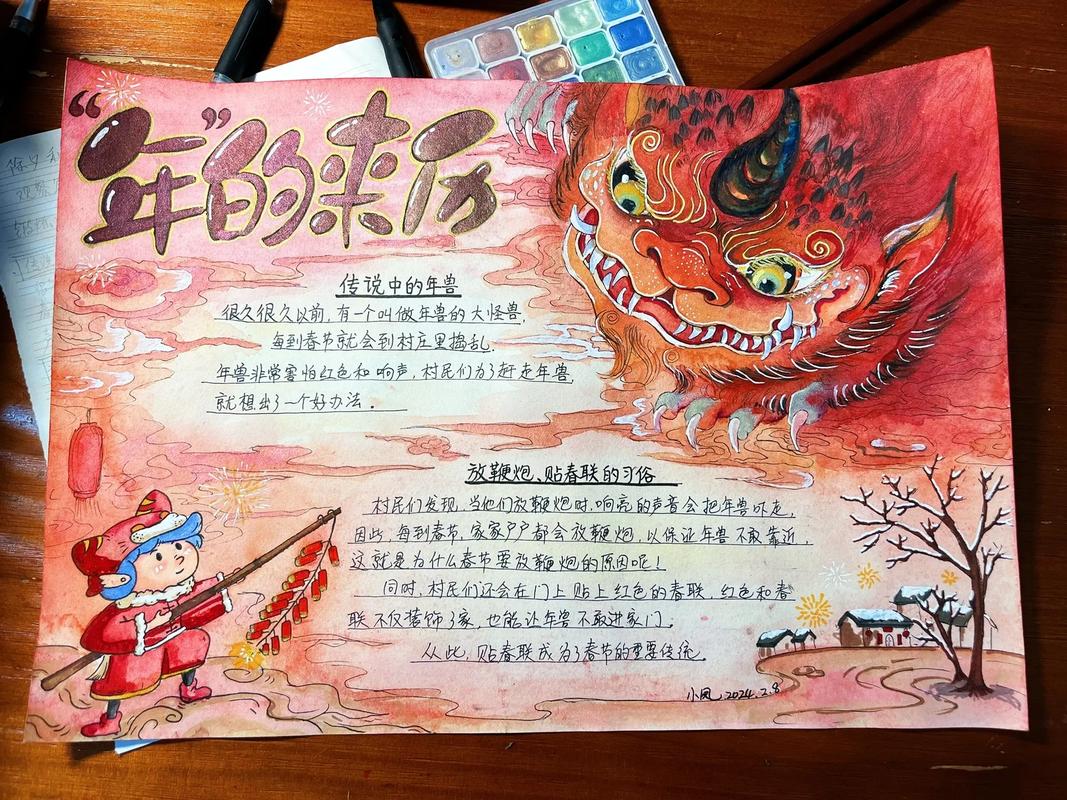 “年”的来历
传说中的年兽
很久很久以前，有一个叫做年兽的大怪兽，
每到春节就会到村庄里捣乱。
年兽非常害怕红色和响声，村民们为了赶走年兽，
就想出了一个好办法。
放鞭炮、贴春联的习俗
村民们发现，当他们放鞭炮时，响亮的声音会把年兽吓走，
因此，每到春节，家家户户都会放鞭炮，以保证年兽不敢靠近，
这就是为什么春节要放鞭炮的原因呢！
同时，村民们还会在门上贴上红色的春联，红色和春
联不仅装饰了家，也能让年兽不敢进家门。
从此，贴春联成为了春节的重要传统。
小凤，2024.2.8